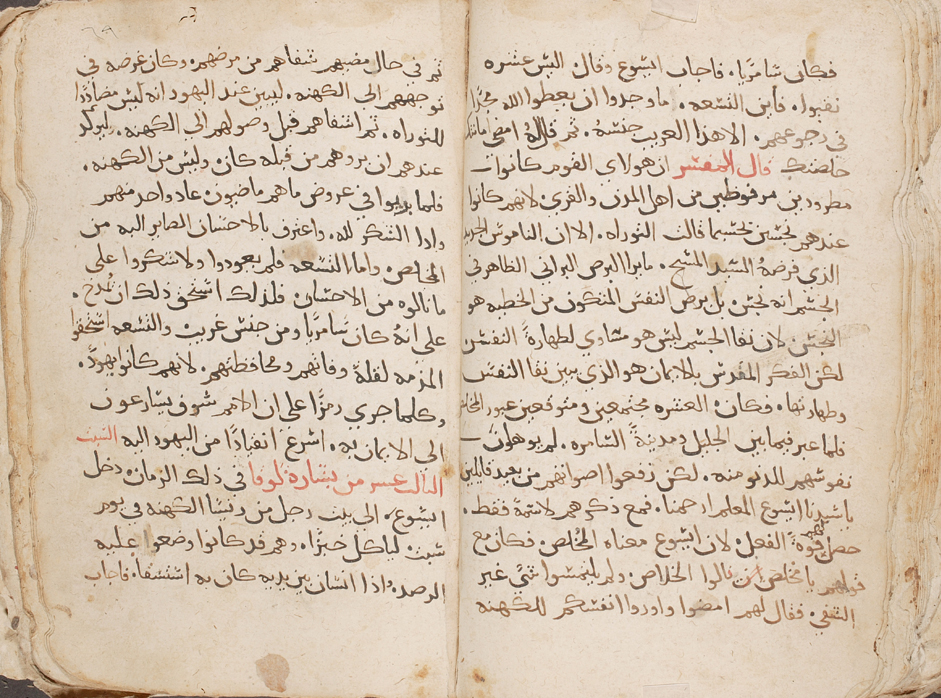 فكان شامريا. فاجاب ايشوع وقال اليس عشره
نقيوا. فاين التسعه. ما وجدوا ان يعطوا الله مجدا
في رجوعهم. الا هذا الغريب جنسهُ. ثم قال لهُ امضي امانتك
خلصتك قال المفسر ان هولاي القوم كانوا
مطرودين مرفوظين من اهل المدن والقري لانهم كانوا
عندهم نجسين نجسيما قالت التوراه. الا ان الناموس الجديد
الذي فرضهُ السيد المسيح. ما يرا البرص البراني الظاهر في
الجسم انه نجس بل برص النفس المتكون من الخطيه هو
النجس لان نقا الجسم ليس هو مساوي لطهارةَ النفس
لكن الفكر المقدس بالايمان هو الذي يبين نقا النفس
وطهارتها. فكان العشره مجتمعين ومتوقعين عبور المخلص
فلما عبر فيما بين الجليل ومدينةَ السامره. لم يوهلون
نفوسهم للدنو منه. لكن رفعوا اصواتهم من بعيد قايلين
يا سيدنا ايشوع المعلم ارحمنا. فمع ذكرهم لاسمهَ فقط.
حصل لهم قوةَ الفعل لان ايشوع معناه المخلص فكان مع
قولهم يا مخلص نالوا الخلاص ولم يلتمسوا شي غير
الشفي. فقال لهم امضوا واوروا انفسكم للكهنه
ثم في حال مضيهم شفاهم من مرضهم. وكان غرضه في
توجههم الي الكهنه. ليبين عند اليهود انه ليس مضاددًا
للتوراه. ثم اشفاهم قبل وصولهم الي الكهنه.
عندهم ان بروهم من قبله كان. وليس من الكهنه.
فلما بريوا في عروض ما هم ماضيون عاد واحد منهم
وادا الشكر لله. واعترف بالاحسان الصاير اليه من
المخلص واما التسعه فلم يعودوا ولا شكروا علي
ما نالوه من الاحسان فلذلك استحق ذلك ان مُدح.
علي انهُ كان سَامريا ومن جنس غريب والتسعه استحقوا
المذمه لقلةَ وفايهم ومحافظتهم. لانهم كانوا يهودً.
وكلما جري رمزًا علي ان الامم سوف يسارعون
الي الايمان به. اسرع انقيادًا من اليهود اليه السبت
الثالث عشر من بشارة لوقا في ذلك الزمان دخل
ايشوع. الي بيت رجل من رييسا الكهنه في يوم
سبت لياكل خبزًا. وهم قد كانوا وضعوا عليه
الرصده. واذا انسان بين يديه كان به استسقا. فاجاب